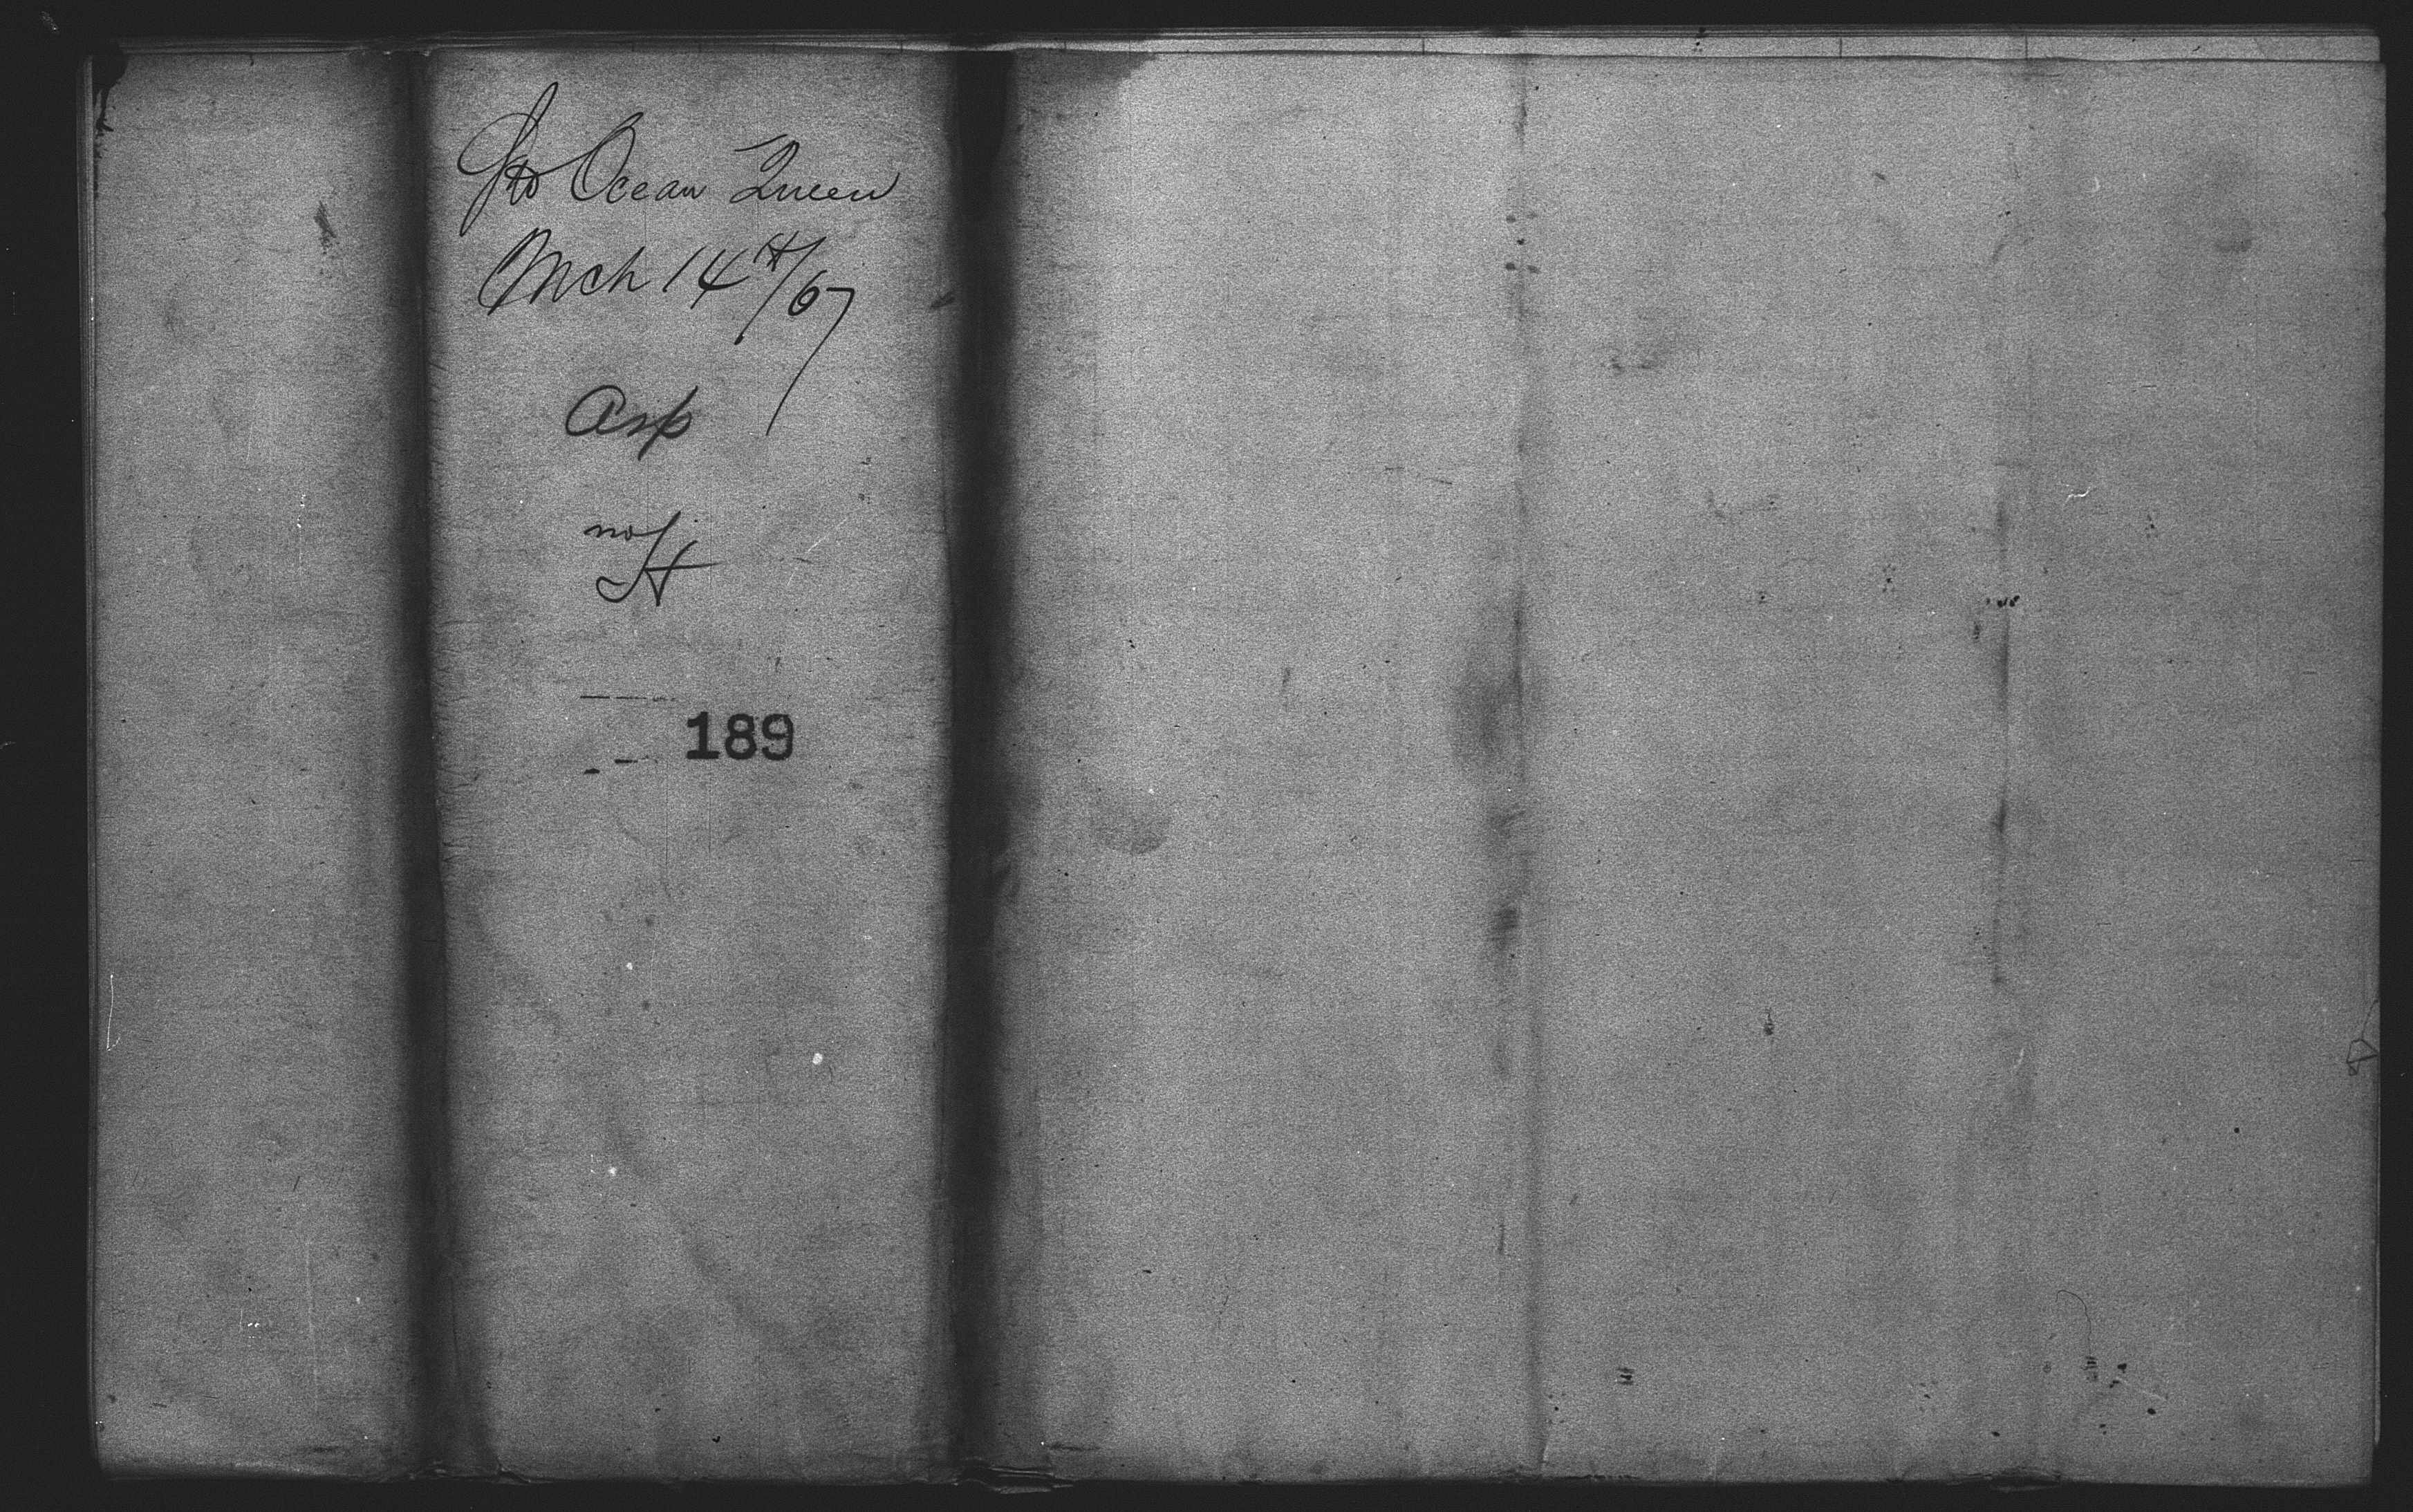 Str Ocean Queen
Mch 14th/67
Asp
no
H
189